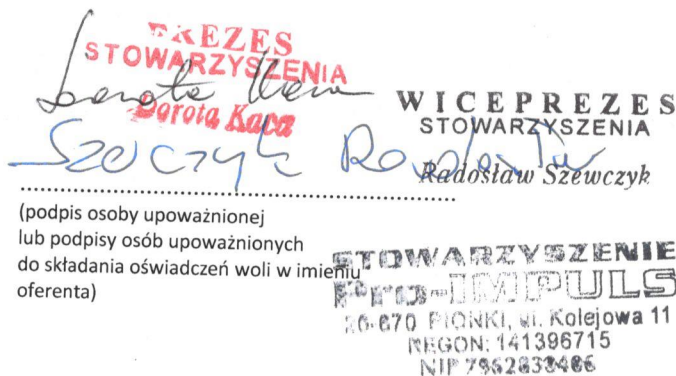 PREZES
STOWARZYSZENIA
Dorota Kaca
Dorota Kaca
WICEPREZES
STOWARZYSZENIA
Radosław Szewczyk
Szewczyk Radosław
(podpis osoby upoważnionej
lub podpisy osób upoważnionych
do składania oświadczeń woli w imieniu
oferenta)
STOWARZYSZENIE
Pro-IMPULS
26-670 PIONKI, ul. Kolejowa 11
REGON: 141396715